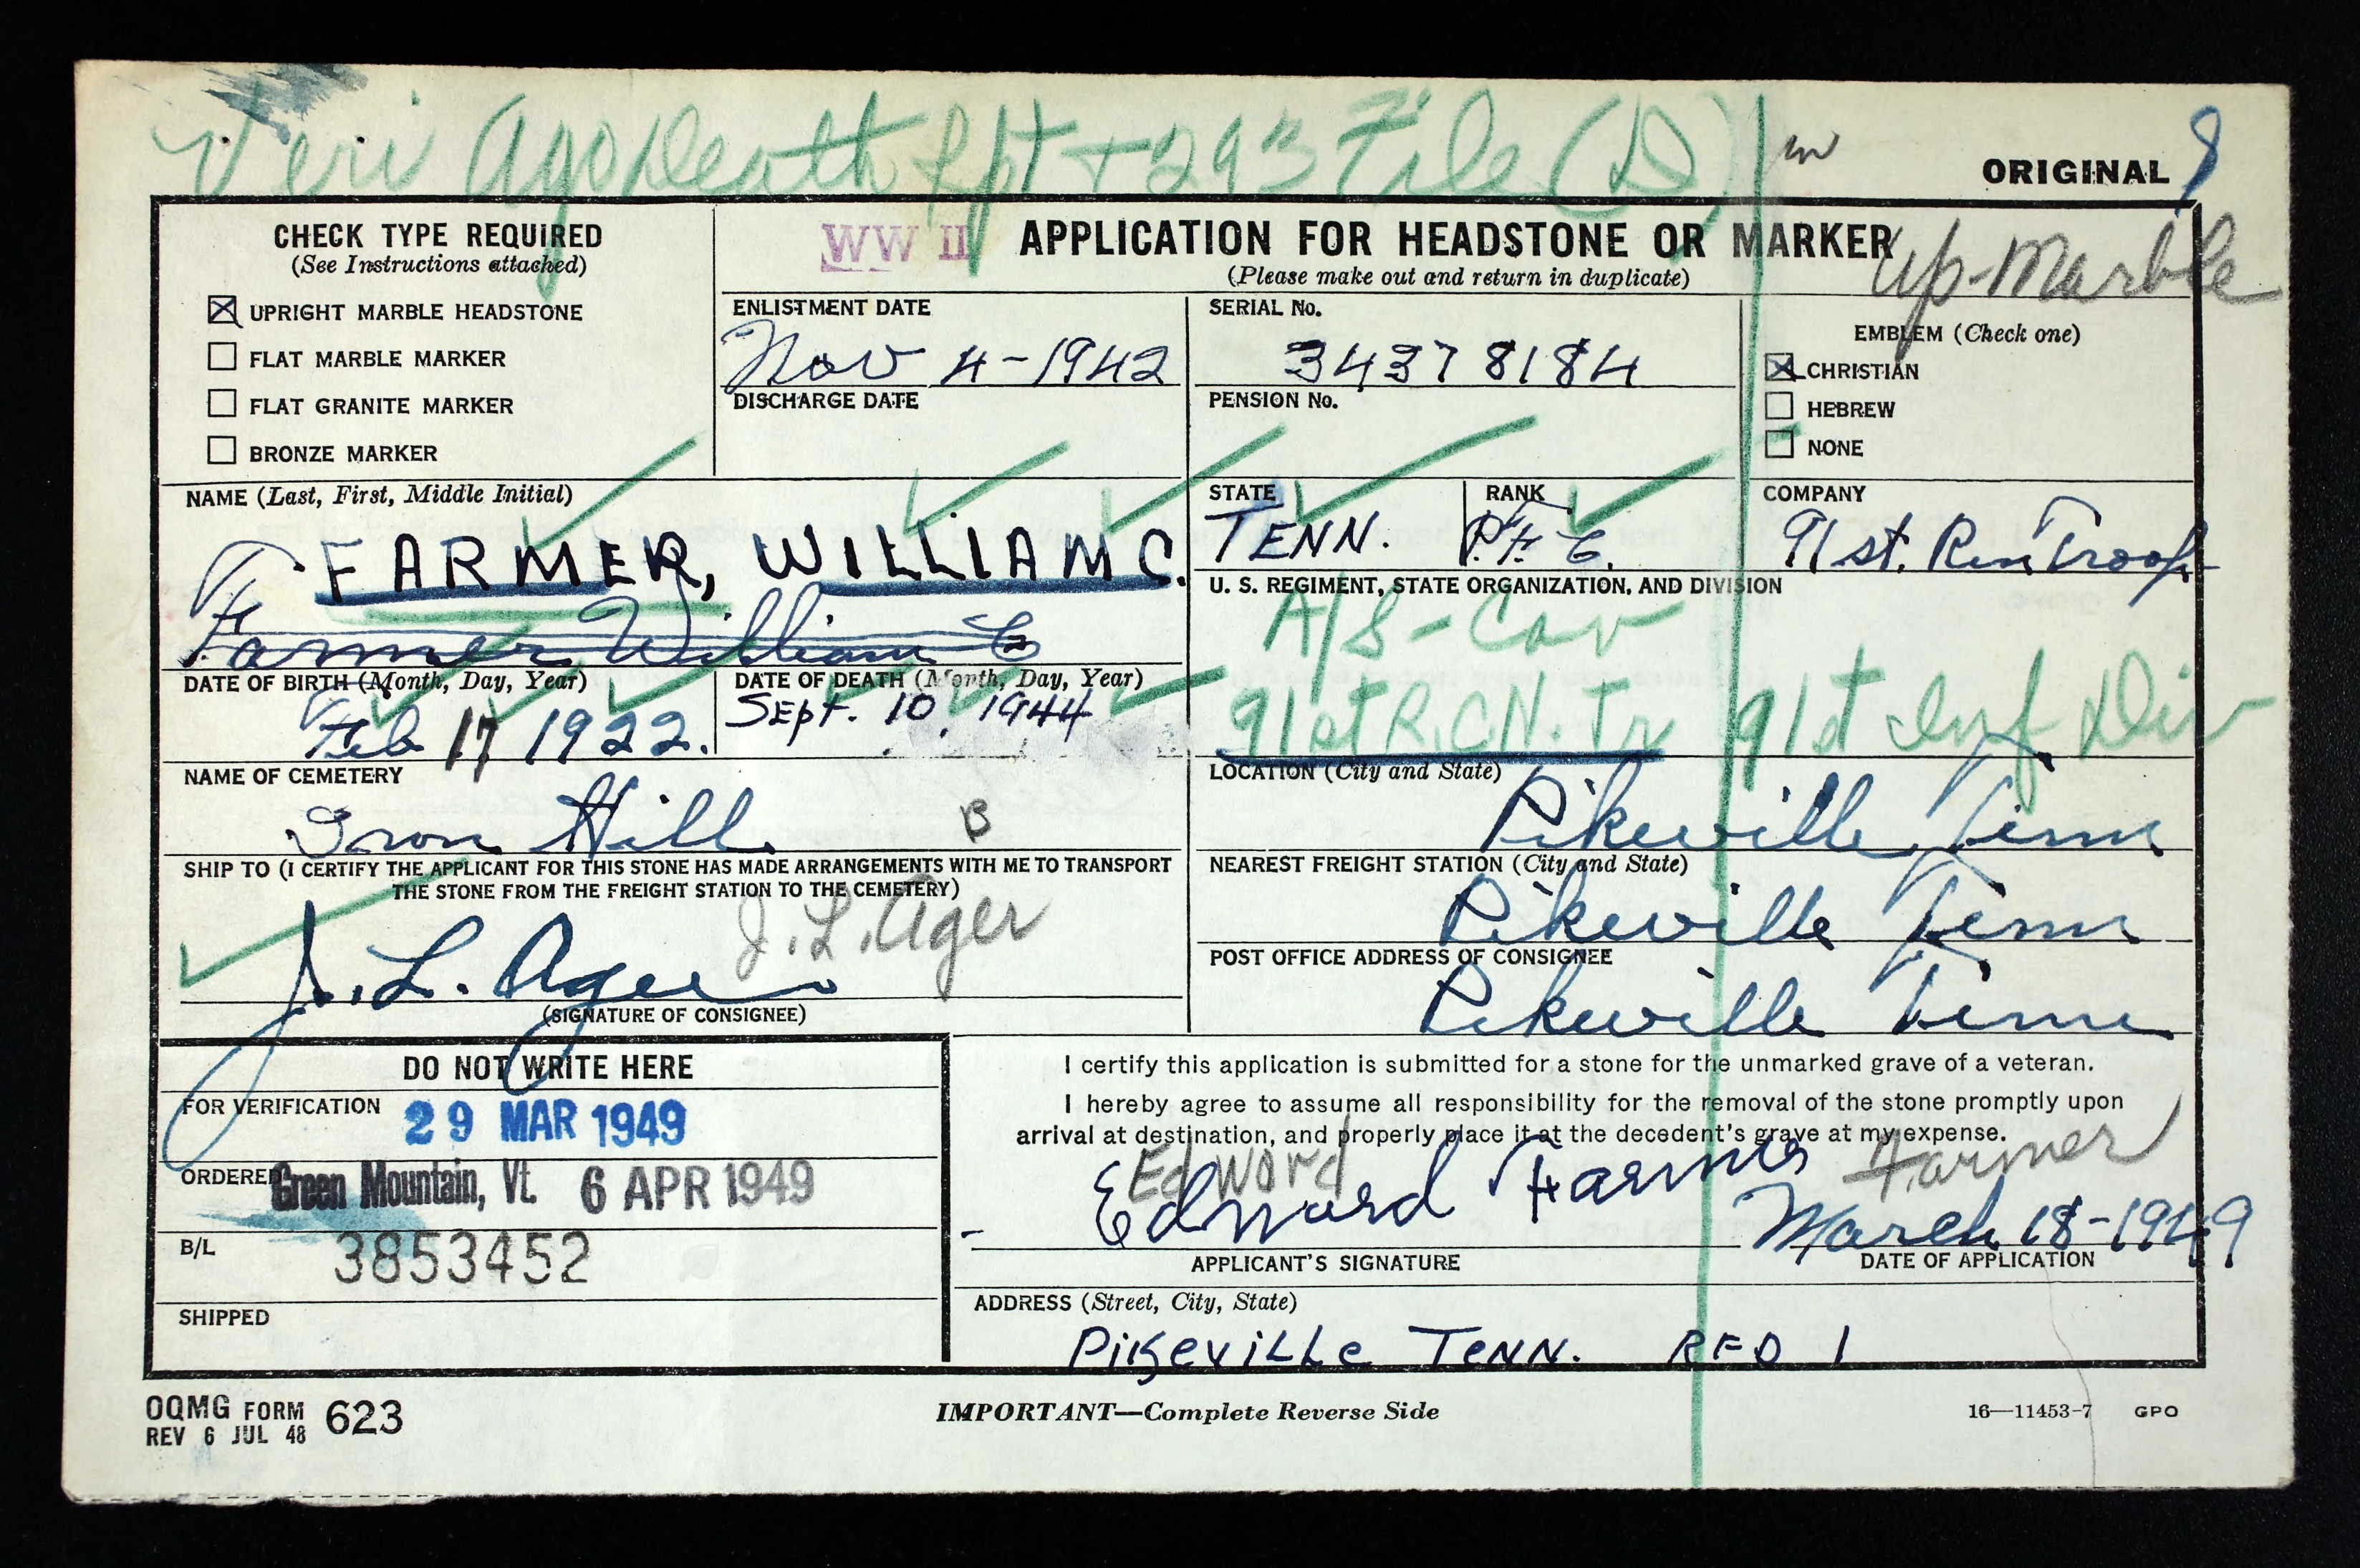 Veri Ago Death Rpt + 293 File (D)
ORIGINAL
CHECK TYPE REQUIRED
(See Instructions attached)
☒ UPRIGHT MARBLE HEADSTONE
☐ FLAT MARBLE MARKER
☐ FLAT GRANITE MARKER
☐ BRONZE MARKER
WW II APPLICATION FOR HEADSTONE OR MARKER
(Please make out and return in duplicate)
Up-Marble
ENLISTMENT DATE
Nov 4-1942
DISCHARGE DATE
SERIAL No.
34378184
PENSION No.
EMBLEM (Check one)
☒ CHRISTIAN
☐ HEBREW
☐ NONE
NAME (Last, First, Middle Initial)
FARMER, WILLIAM C.
Farmer William C
STATE
TENN.
RANK
Pfc.
COMPANY
91st. Rcn Troop
U. S. REGIMENT, STATE ORGANIZATION, AND DIVISION
A/S - Cav
91st R.C.N. Tr 91st Inf Div
DATE OF BIRTH (Month, Day, Year)
Feb 17 1922.
DATE OF DEATH (Month, Day, Year)
SEpt. 10, 1944
NAME OF CEMETERY
Iron Hill
B
LOCATION (City and State)
Pikeville Tenn
SHIP TO (I CERTIFY THE APPLICANT FOR THIS STONE HAS MADE ARRANGEMENTS WITH ME TO TRANSPORT
THE STONE FROM THE FREIGHT STATION TO THE CEMETERY)
J. L. Ager
J. L. Ager
(SIGNATURE OF CONSIGNEE)
NEAREST FREIGHT STATION (City and State)
Pikeville Tenn
POST OFFICE ADDRESS OF CONSIGNEE
Pikeville Tenn
DO NOT WRITE HERE
FOR VERIFICATION 29 MAR 1949
ORDERED Green Mountain, Vt. 6 APR 1949
B/L 3853452
SHIPPED
I certify this application is submitted for a stone for the unmarked grave of a veteran.
I hereby agree to assume all responsibility for the removal of the stone promptly upon
arrival at destination, and properly place it at the decedent's grave at my expense.
Edward Farmer
Edward Farmer
March 18-1949
APPLICANT'S SIGNATURE
DATE OF APPLICATION
ADDRESS (Street, City, State)
PikeviLLe TeNN. RFD 1
OQMG FORM 623
REV 6 JUL 48
IMPORTANT—Complete Reverse Side
16—11453-7 GPO